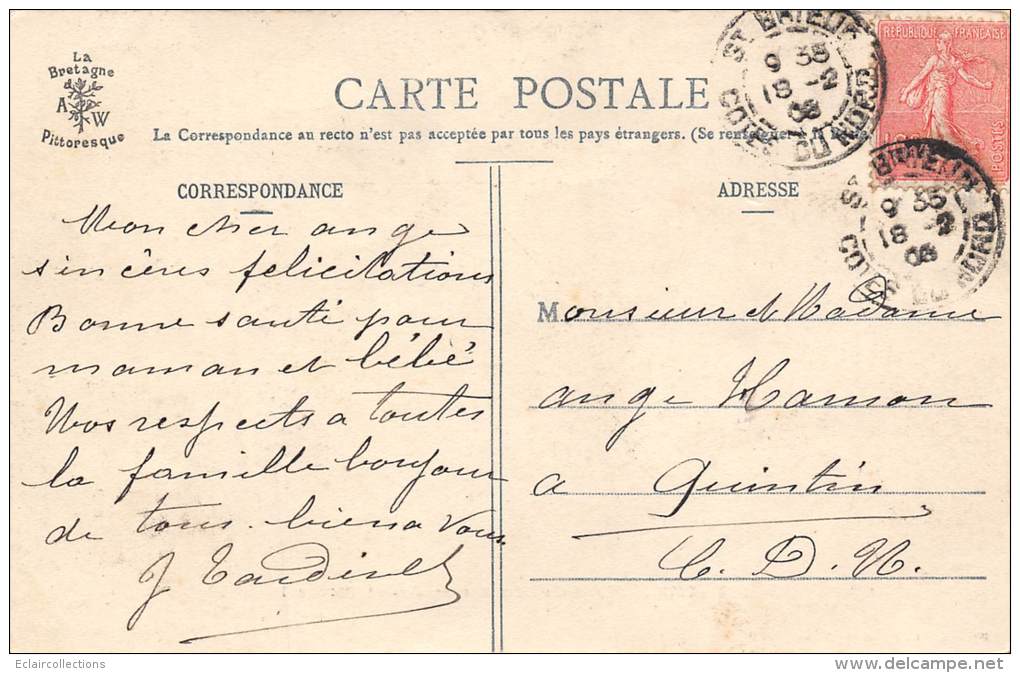 La
Bretagne
A W
Pittoresque
CARTE POSTALE
La Correspondance au recto n'est pas acceptée par tous les pays étrangers. (Se renseigner à la
CORRESPONDANCE
ADRESSE
REPUBLIQUE FRANÇAISE
POSTES
ST BRIEUC
9 35
18 -2
08
COTES DU NORD
ST BRIEUC
9 35
18 -2
08
COTES DU NORD
Mon cher ange
sincères felicitations
Bonne santé pour
maman et bébé
Nos respects a toutes
la famille bonjour
de tous. bien a vous
J
Monsieur & Madame
ange Hamon
a Quintin
C. D. N.
Eclaircollections
www.delcampe.net